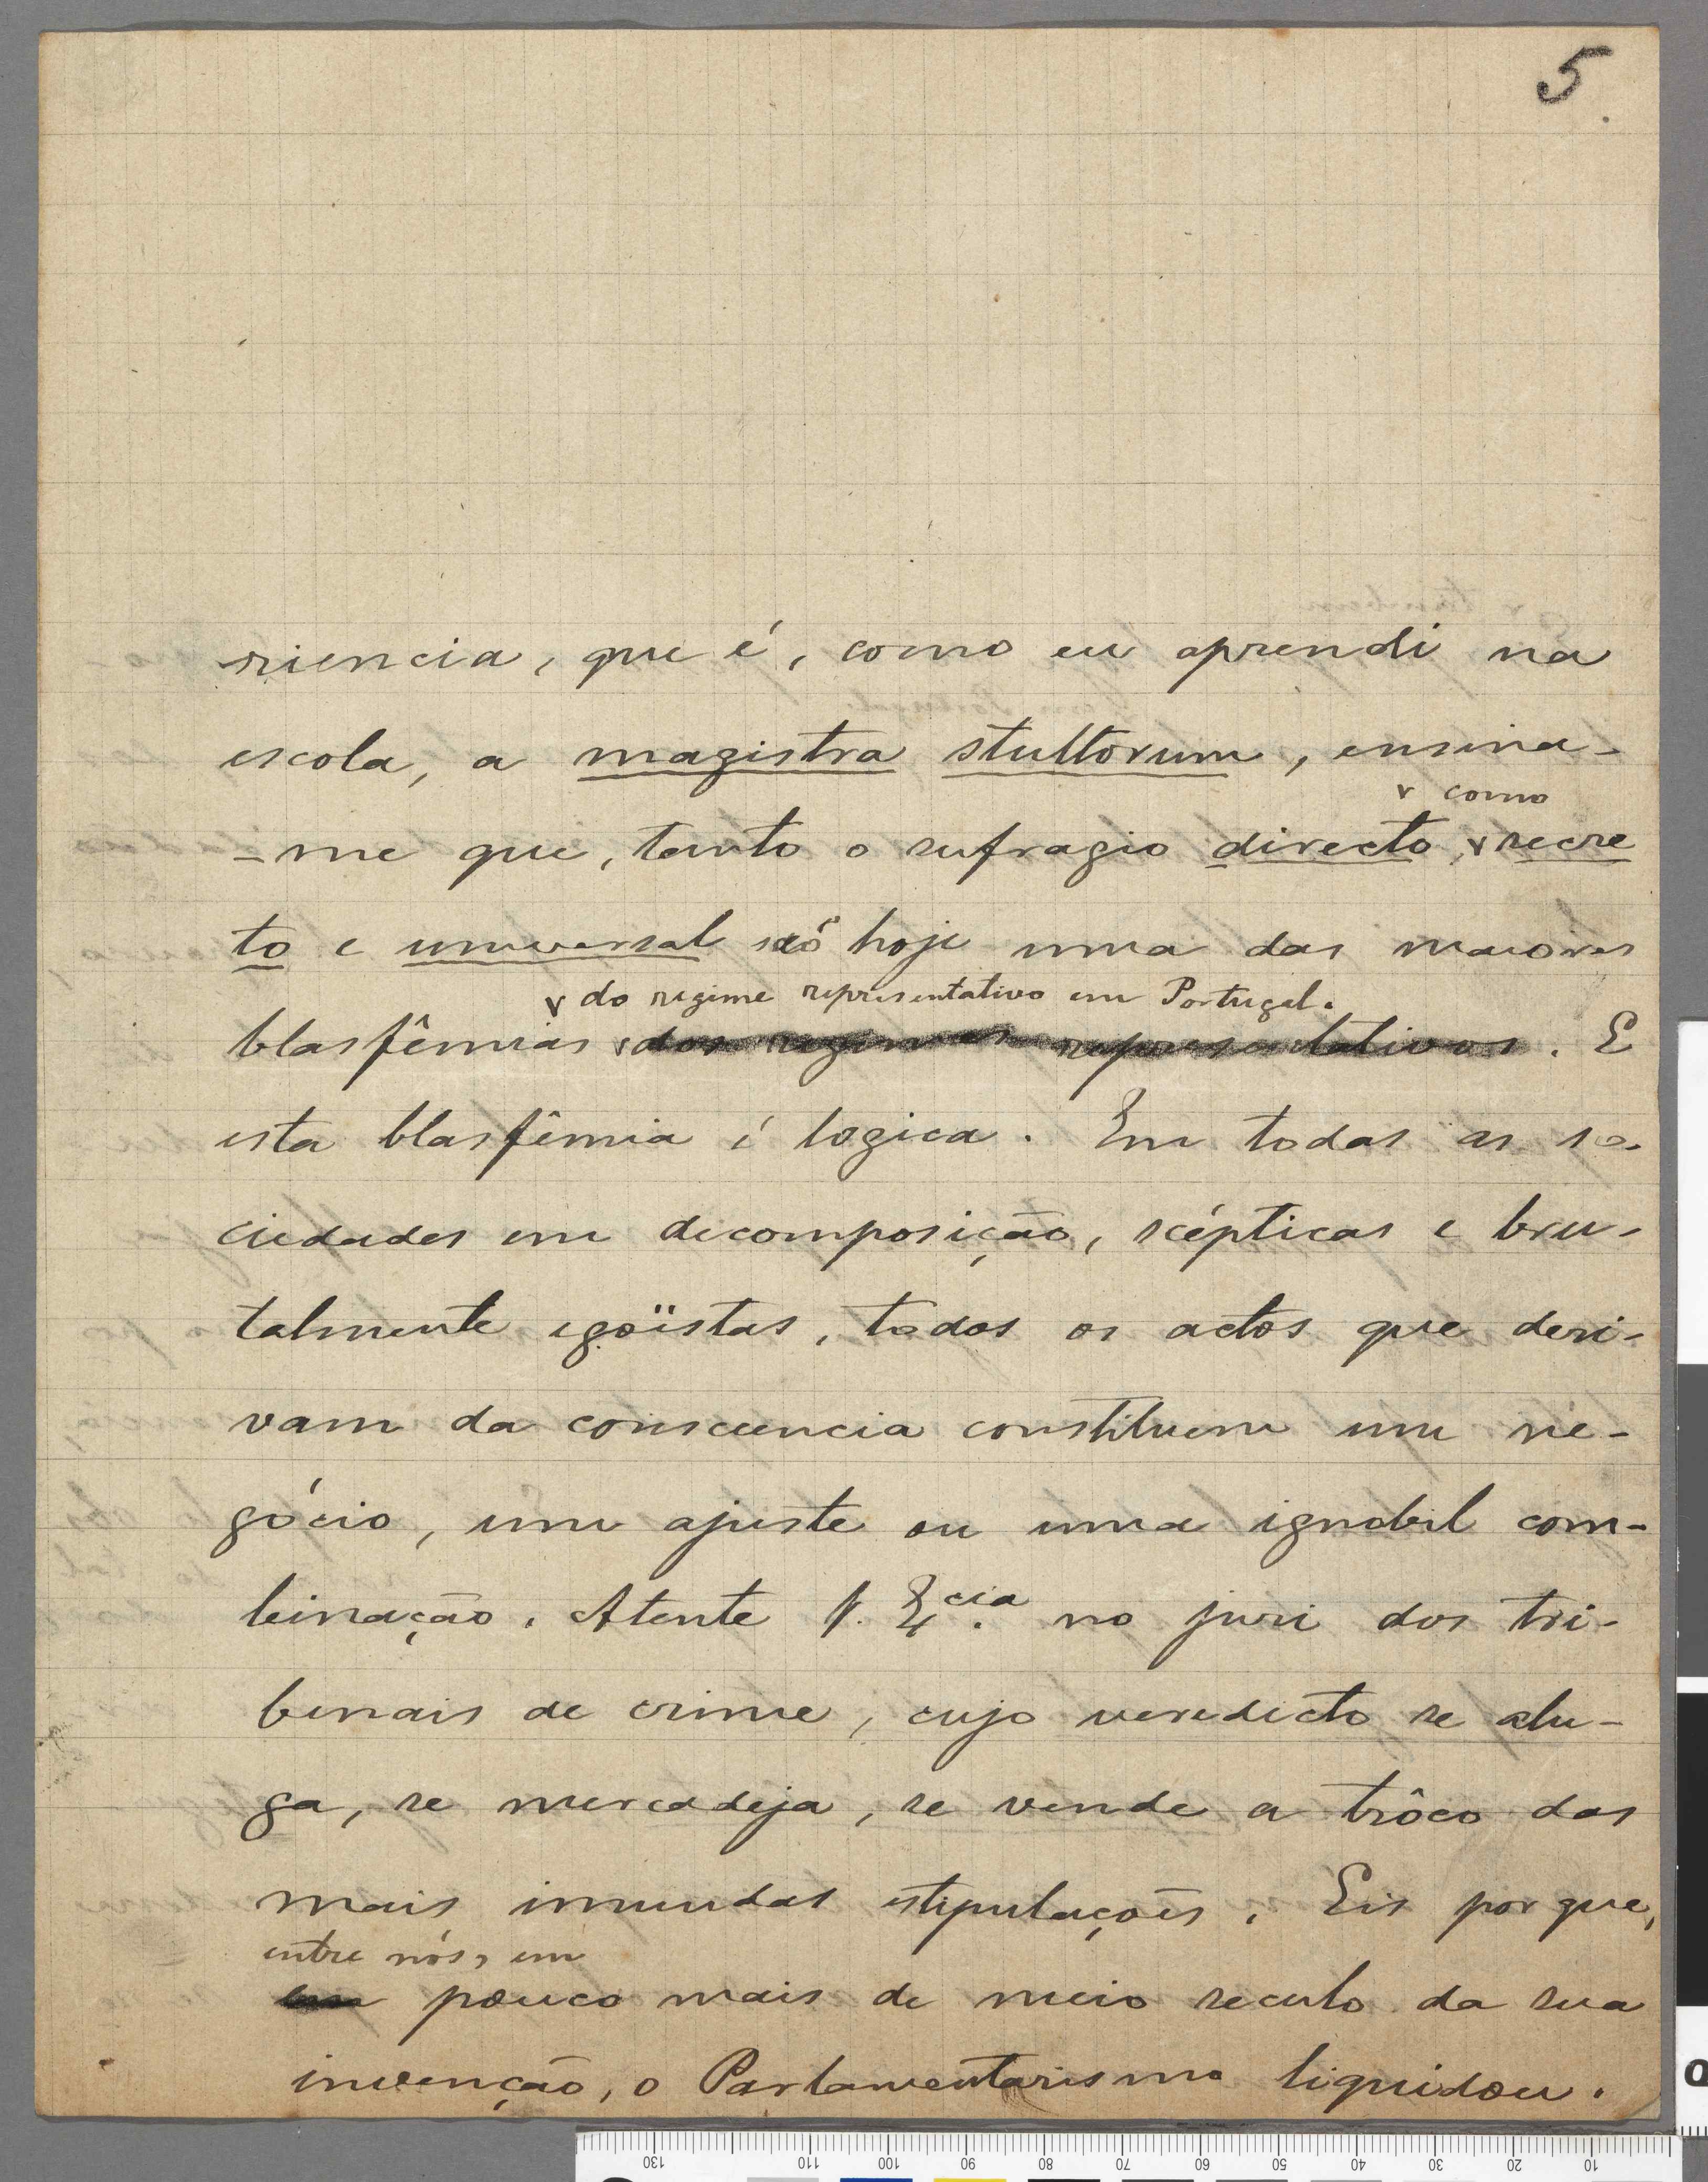 5.
riencia, que é, como eu aprendi na
escola, a magistra stultorum, ensina-
v como
-me que, tanto o sufragio directo, v secre
to e universal são hoje uma das maiores
v do regime representativo em Portugal.
blasfêmias v dos regimes representativos. E
esta blasfêmia é logica. Em todas as so-
ciedades em decomposição, scépticas e bru-
talmente egoïstas, todos os actos que deri-
vam da consciencia constituem um ne-
gócio, um ajuste ou uma ignobil com-
binação. Atente V. Ex.cia no juri dos tri-
bunais de crime, cujo veredicto se alu-
ga, se mercadeja, se vende a trôco das
mais imundas estipulações. Eis porque,
entre nós, em
em pouco mais de meio seculo da sua
invenção, o Parlamentarismo liquidou.
130 110 100 90 80 70 60 50 40 30 20 10